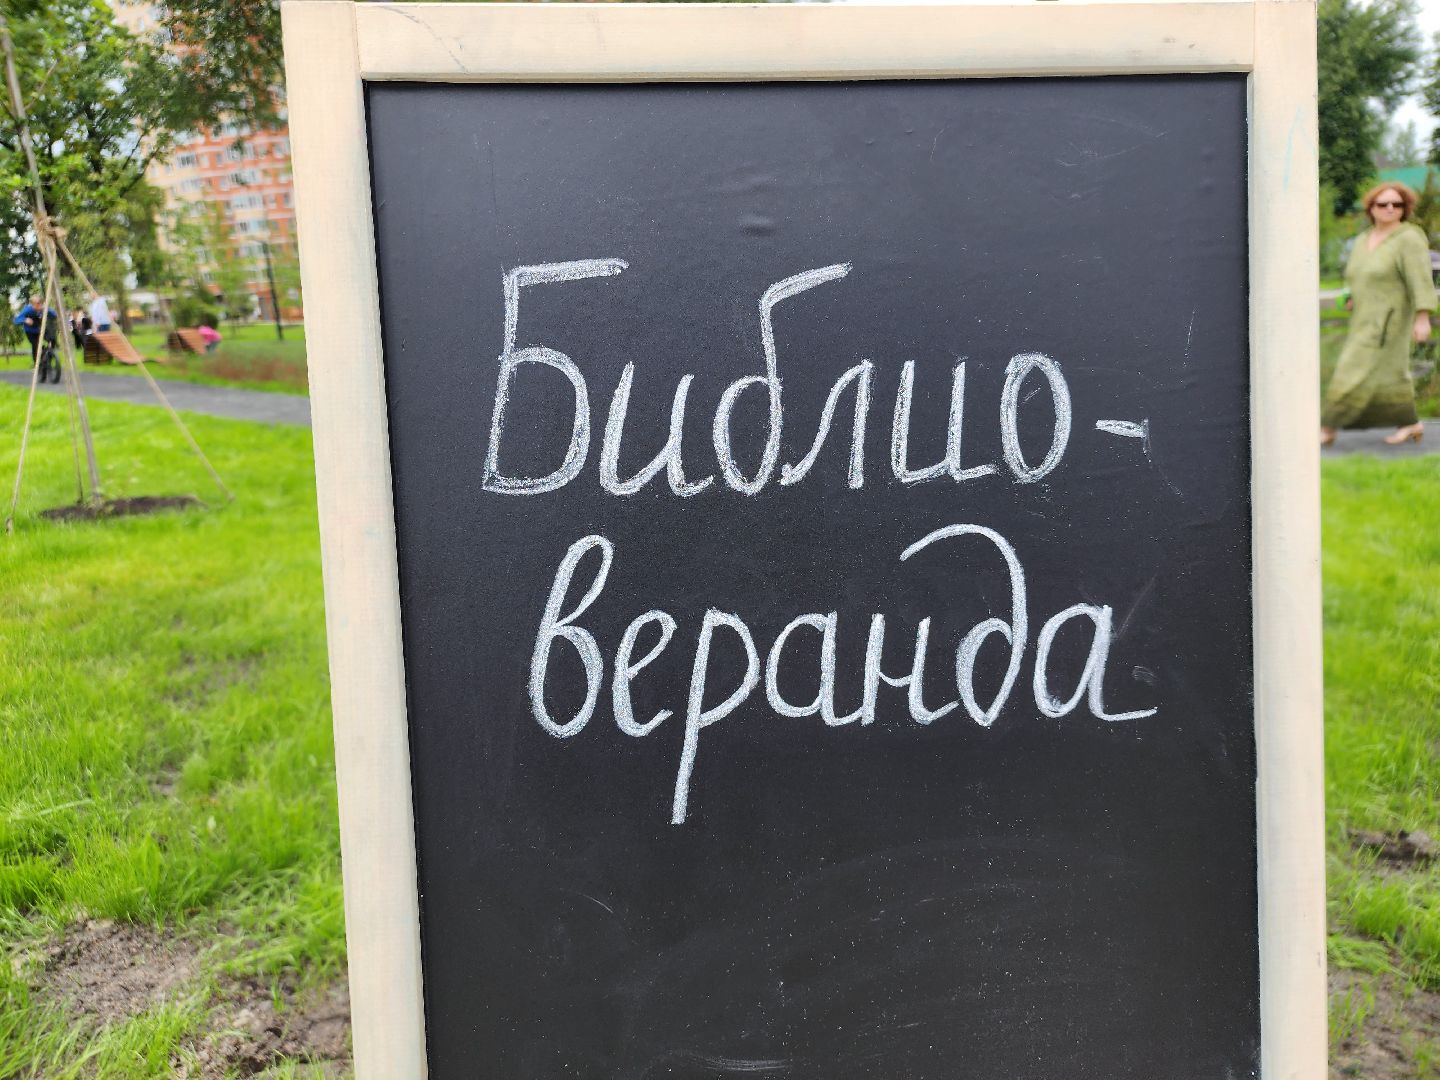 Библио-
веранда